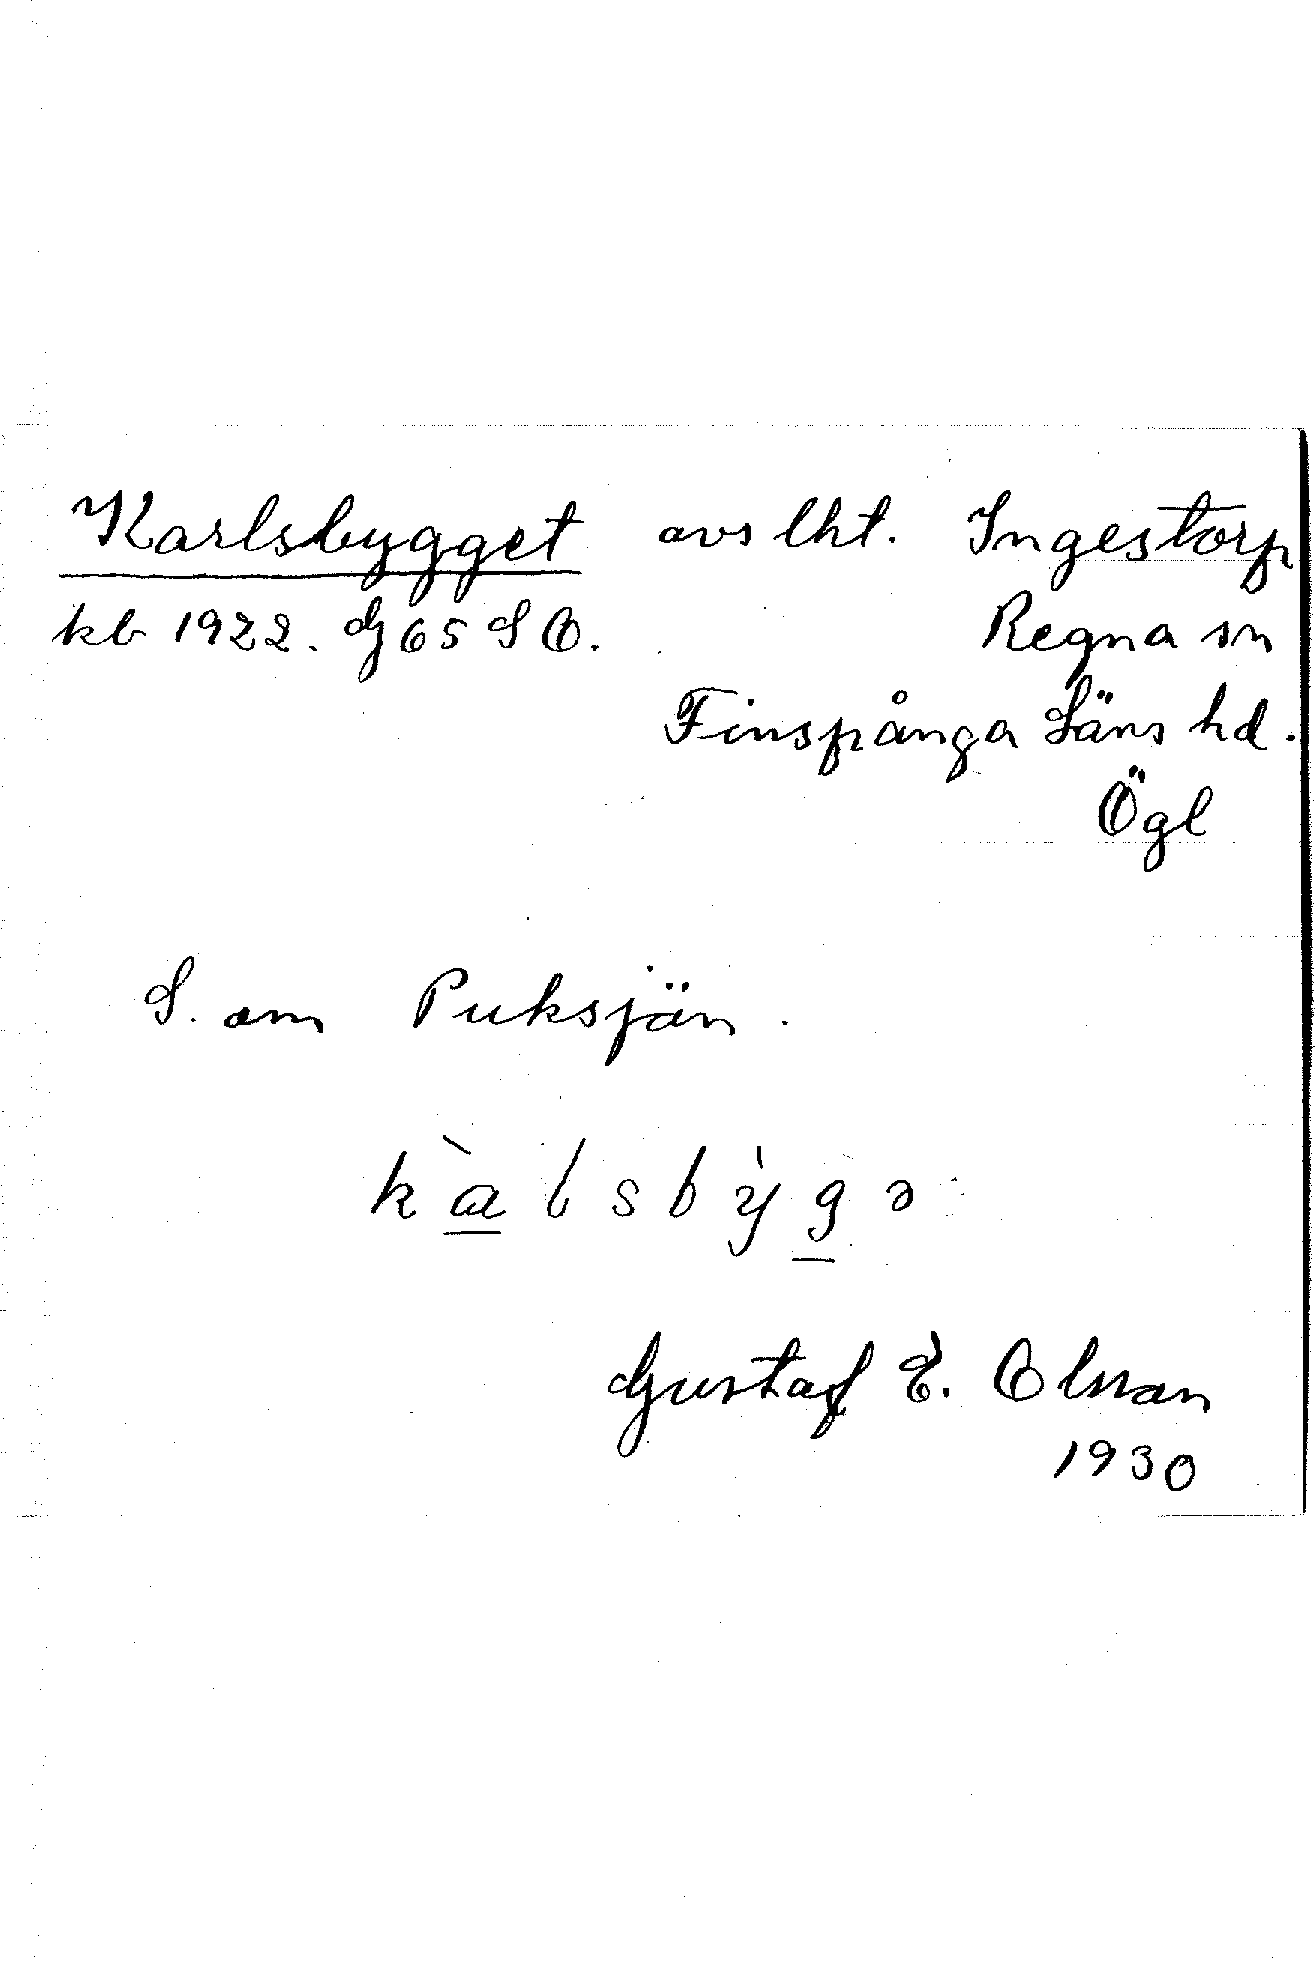 Karlsbygget avs lht. Ingestorp
kb 1922. G 65 S O. Regna sn
Finspånga Läns hd.
Ögl
S. om Puksjön.
kàlsbỳgə
Gustaf E. Olsson
1930